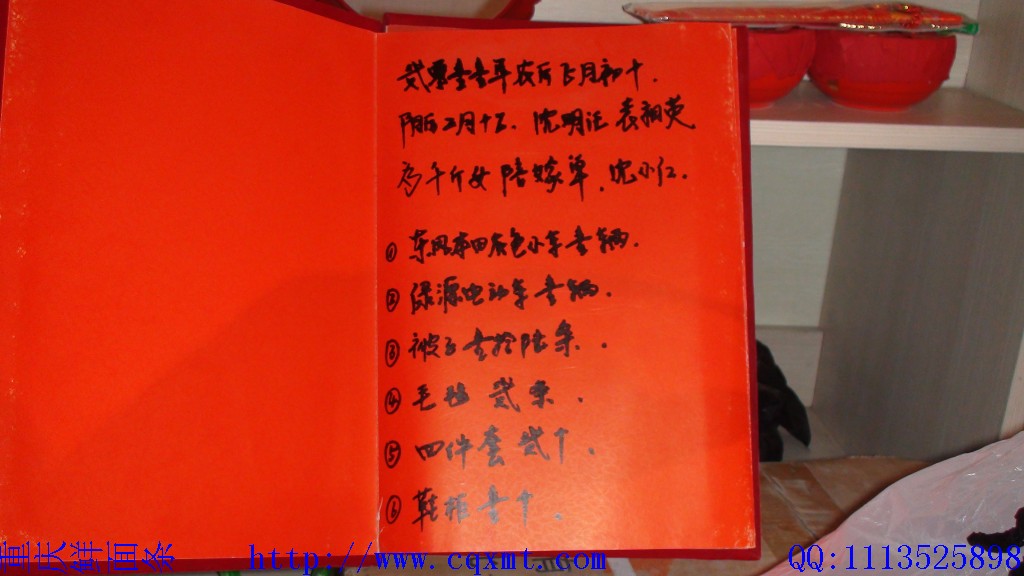 贰零壹壹年农历正月初十.
阳历二月十二. 沈明江 袁相英
为千斤女陪嫁单. 沈小仁.
① 东风本田灰色小车壹辆.
② 绿源电动车壹辆.
③ 被子壹拾陆条.
④ 毛毯 贰条.
⑤ 四件套 贰个.
⑥ 鞋柜壹个.
重庆鲜面条 http://www.cqxmt.com QQ:1113525898